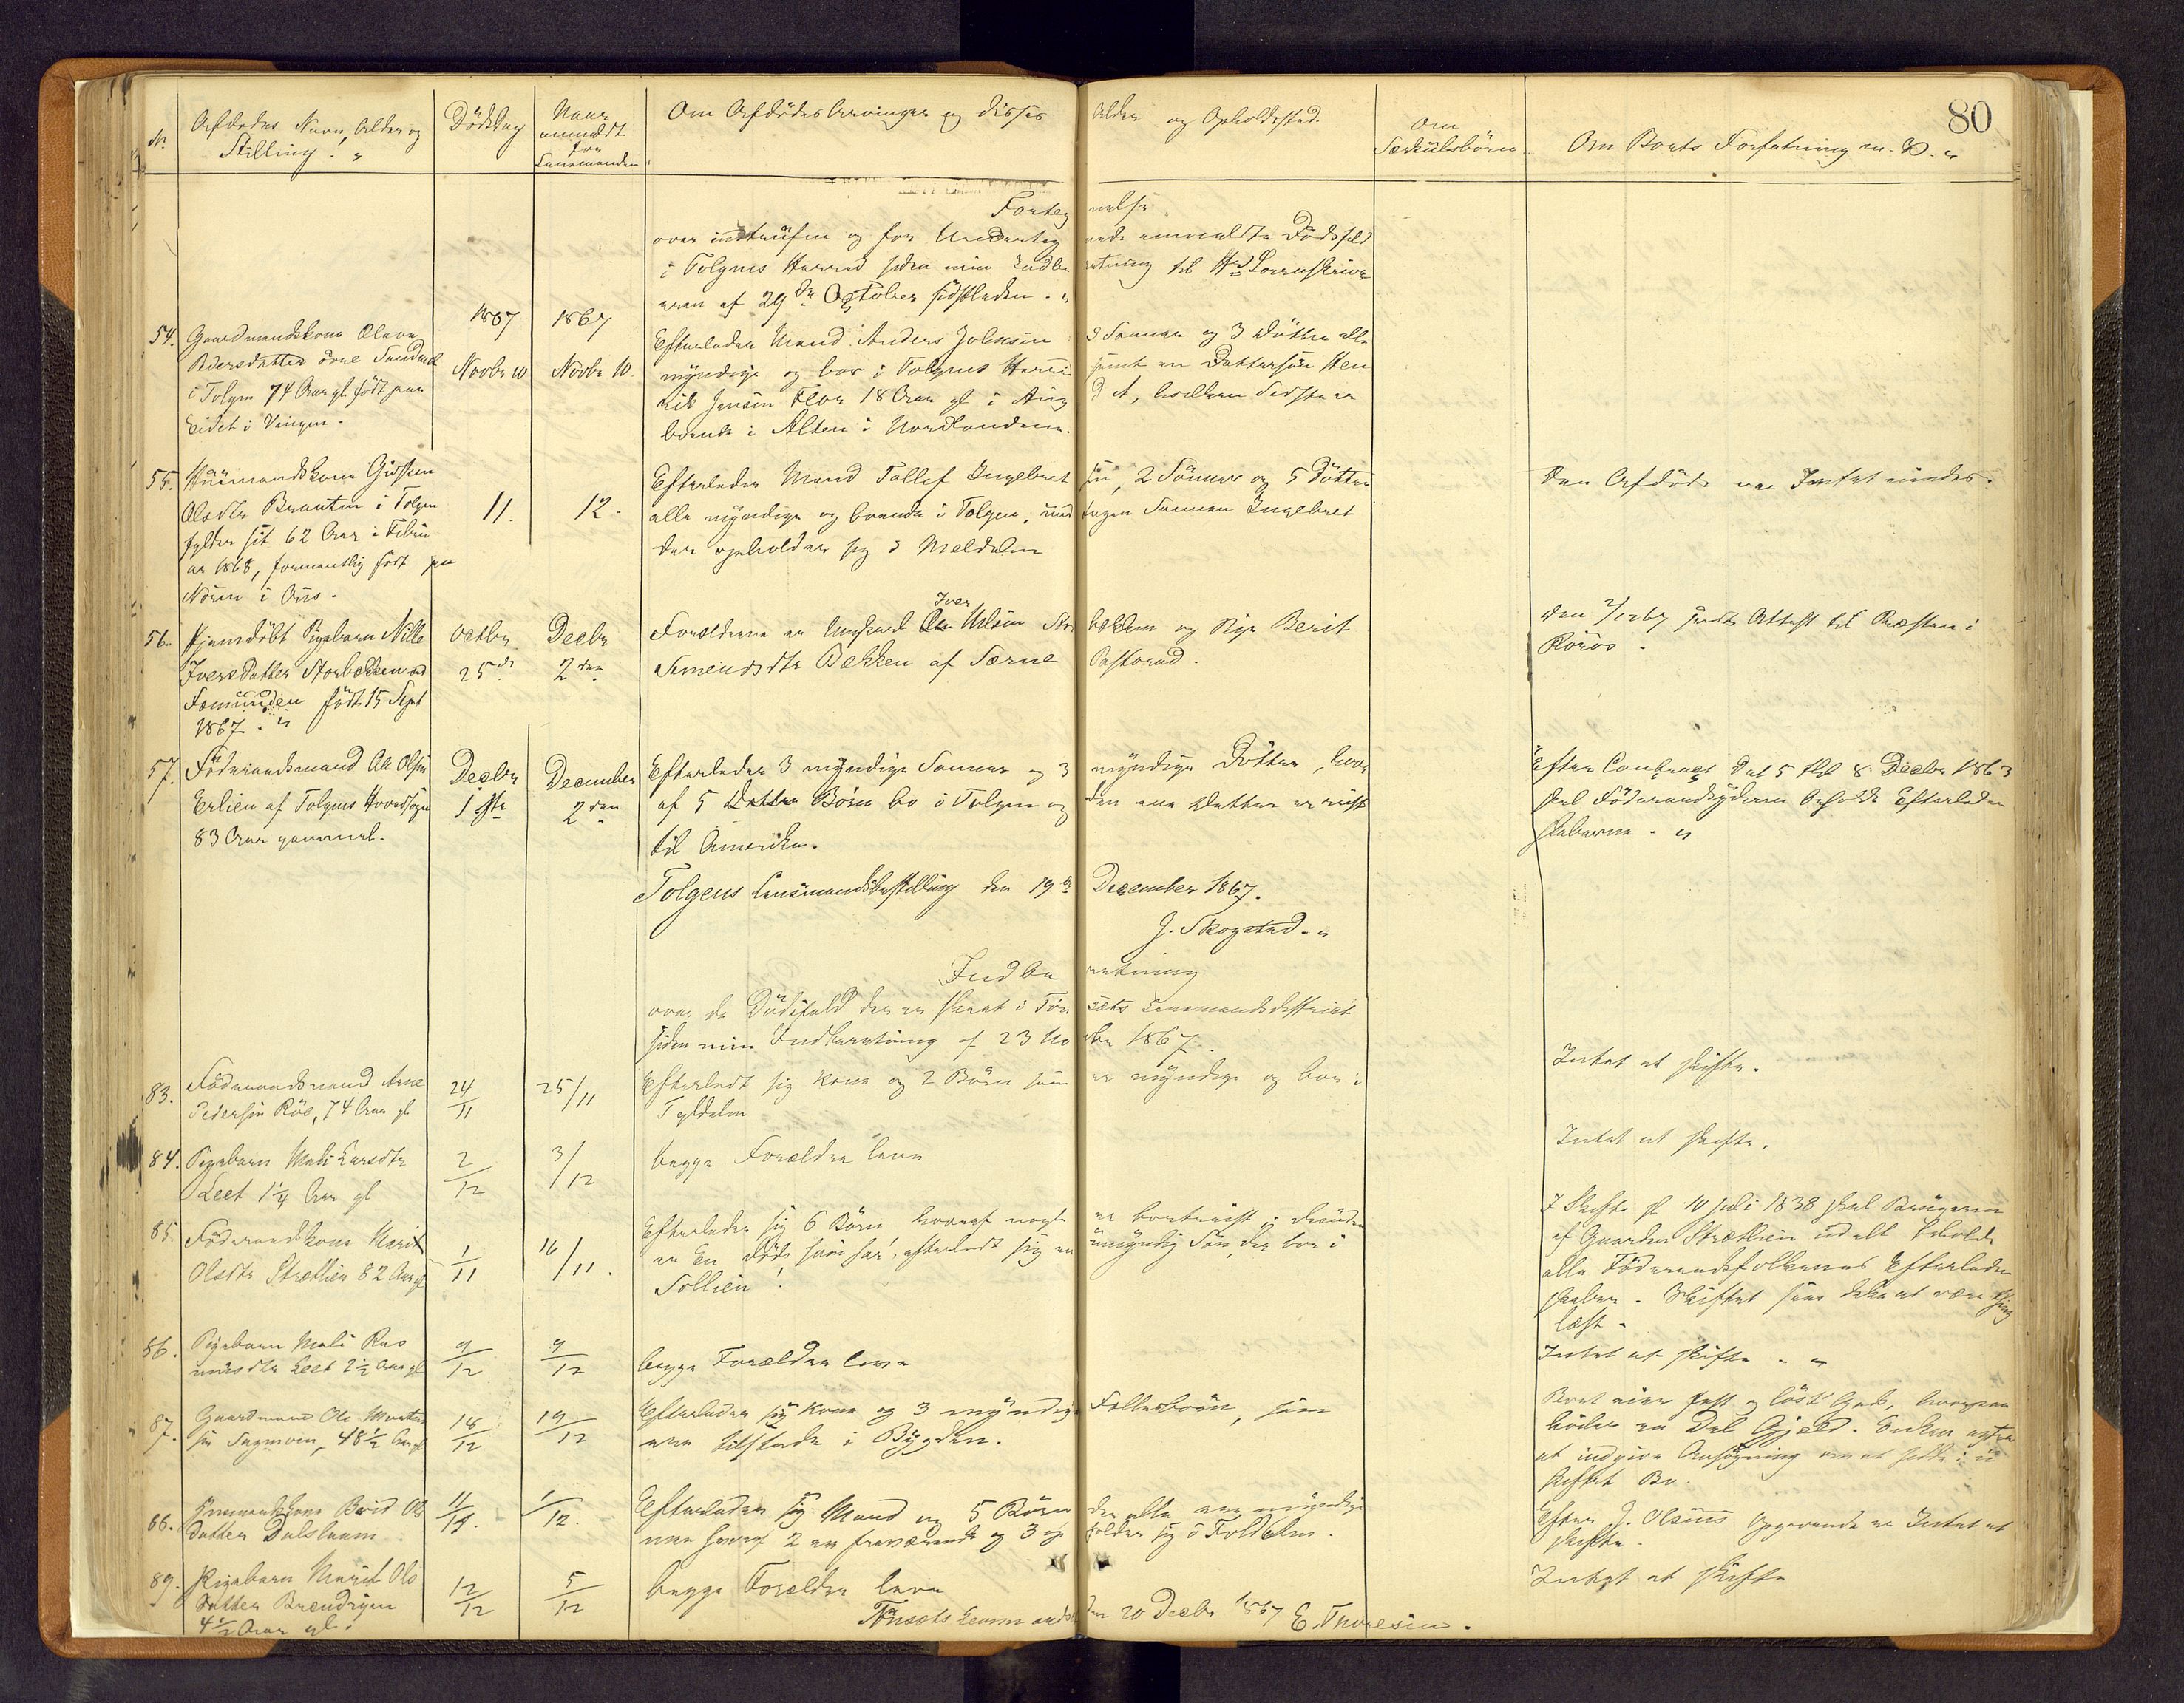 80
No.
Afdødes Navn, Alder og
Stilling. "
Dødsdag
Naar
anmeldt
for
Lensmanden
Om Afdødes Arvinger og disses Alder og Opholdssted.
Om
Særkulsbörn.
Om Boets Forfatning m. V. "
Forteg nelse
over indtrufne og for Underteg nede anmeldte Dødsfald
i Tolgens Herred siden min Indbe retning til Hr Sorenskrive
eren af 29de October sidstleden. "
54. Gaardmandskone Olava
Pedersdatter övre Sundmoe
i Tolgen 74 Aar gl. født paa
Eidet i Vingen.
1867
Novbr 10
1867
Novbr 10.
Efterlader Mand Anders Johnsen 3 Sønner og 3 Døttre alle
myndige og boe i Tolgens Herred samt en Dattersøn Hen
rik Jensen Floer 18 Aar gl i Aug d A, hvilken Sidste er
boende i Alten i Nordlandene.
55. Huusmandskone Gidsken
Olsdtr Brauten i Tolgen
fylder sit 62 Aar i Febru
ar 1868, formentlig født paa
Noren i Oos.
11.
12.
Efterlader Mand Tollef Ingebret sen, 2 Sönner og 5 Döttre
alle myndige og boende i Tolgen, und tagen Sønnen Ingebret
der opholder sig i Meldalen
Den Afdøde var Intet eiendes.
56. Hjemdøbt Pigebarn Nille
Iversdatter Storbekken ved
Fæmunden født 15 Sept
1867. "
Octbr
25de
Decbr
2den
Forældrene er Ungkarl Iver Nilsen Stor bekken og Pige Berit
Simensdtr Bekken af Særne Pastorad.
Den 2/12 67 sendt Attest til Præsten i
Röros.
57. Föderaadsmand Ole Olsen
Erlien af Tolgens Hovedsogn
83 Aar gammel.
Decbr
1ste
December
2den
Efterlader 3 myndige Sønner og 3 myndige Döttre, hvor
af 5 Børn bo i Tolgen og den ene Datter er reist
til Amerika.
Efter Contract Dat 5 8 Decbr 1863
skal Föderaadsyderen beholde Efterladen
skaberne. "
Tolgens Lensmandsbestilling den 19de December 1867.
J. Skogstad. "
Indbe retning
over de Dødsfald der er skeet i Tøn sets Lensmandsdistrict
siden min Indberetning af 23 No vbr 1867.
83. Föderaadsmand Arne
Pedersen Röe, 74 Aar gl
24/11
25/11
Efterladt sig Kone og 2 Børn som er myndige og boe i
Tyldalen
Intet at skifte.
84. Pigebarn Mali Larsdtr
Leet 1¼ Aar gl
2/12
3/12
begge Forældre leve
Intet at skifte.
85. Föderaadskone Marit
Olsdtr Strætlien 82 Aar gl
1/11
16/11.
Efterlader sig 6 Börn hvoraf nogle er bortreist; desuden
er En död, som har efterladt sig en umyndig Søn, der bor i
Sollien.
I Skifte gl 10 Juli 1838 skal Brugeren
af Gaarden Strætlien udelt beholde
alle Föderaadsfolkenes Efterladen
skaber. Skiftet siges ikke at være thing
læst.
86. Pigebarn Mali Ras
musdtr Leet 2½ Aar gl
9/12
9/12
begge Forældre leve
Intet at skifte. "
87. Gaardmand Ole Morten
sen , 48½ Aar gl
18/12
19/12
Efterlader sig Kone og 3 myndige Fellesbörn, som
ere tilstede i Bygden.
Boet eier fast og löst Gods, hvorpaa
hviler en Del Gjeld. Enken agter
at indgive Ansøgning om at sidde i u
skiftet Bo.
88. Berit Ols
datter Dalsbaam
/12.
Efterlader sig Mand og 5 Börn der alle ere myndige
men hvoraf 2 er fraværende og 3 op holder sig i Foldalen.
Efter J. Olsens Opgivende er Intet at
skifte.
89. Pigebarn Marit Ols
datter Brendryen
4½ Aar gl.
12/12
5/12
begge Forældre leve
Intet at skifte
Tönsets Lensmands den 20 Decbr 1867 E. Thoresen.